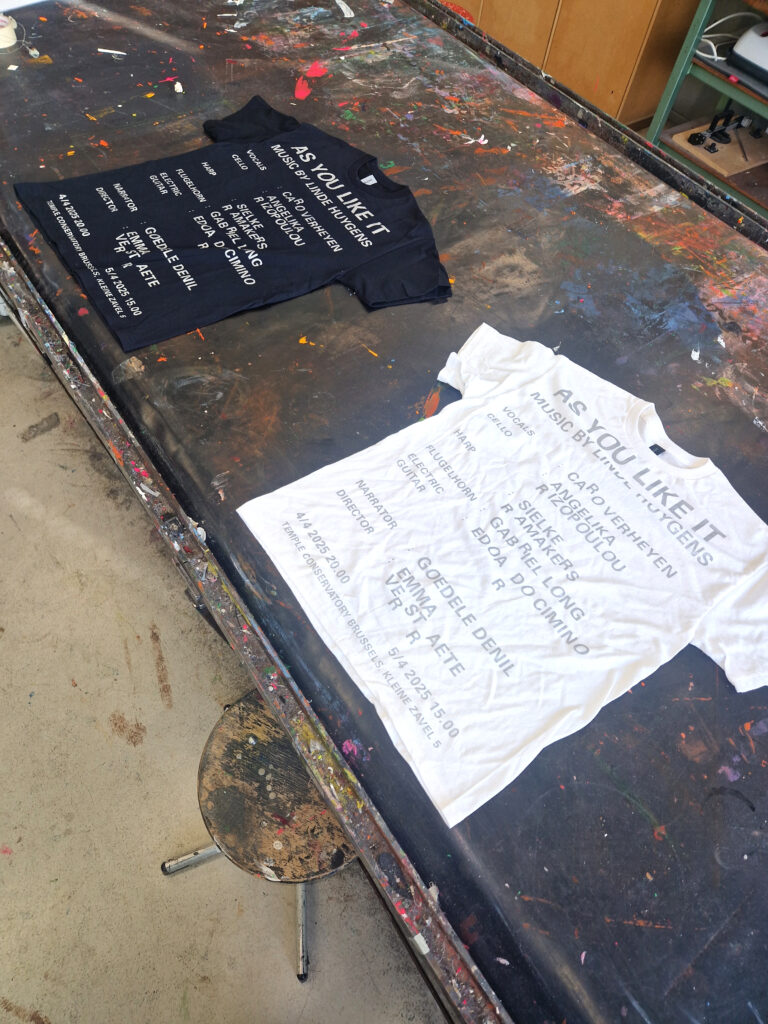 AS YOU LIKE IT
MUSIC BY LINDE HUYGENS
VOCALS CARO VERHEYEN
CELLO ANGELIKA
RIZOPOULOU
HARP SIELKE
RAMAKERS
FLUGELHORN GABRIEL LONG
ELECTRIC EDOA DO CIMINO
GUITAR R
NARRATOR GOEDELE DENIL
DIRECTOR EMMA
VE ST AETE
R R
4/4 2025 20.00 5/4 2025 15.00
TEMPLE CONSERVATORY BRUSSELS, KLEINE ZAVEL 5
AS YOU LIKE IT
MUSIC BY LINDE HUYGENS
VOCALS CARO VERHEYEN
CELLO ANGELIKA
RIZOPOULOU
HARP SIELKE
RAMAKERS
FLUGELHORN GABRIEL LONG
ELECTRIC EDOA DO CIMINO
GUITAR R
NARRATOR GOEDELE DENIL
DIRECTOR EMMA
VE ST AETE
R R
4/4 2025 20.00 5/4 2025 15.00
TEMPLE CONSERVATORY BRUSSELS, KLEINE ZAVEL 5